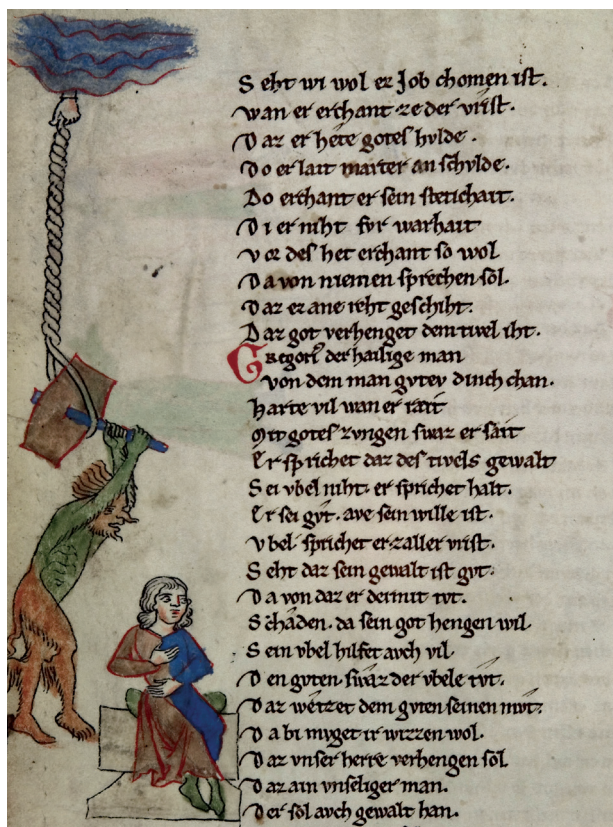 Seht wi wol er Job chomen ist.
wan er erchant ze der vrist.
Daz er hete gotes hvlde.
Do er lait marter an schvlde.
Do erchant er sein sterichait.
Di er niht fvr warhait
vor des het erchant so wol
Da von niemen sprechen sol.
Daz ez ane reht geschiht.
Daz got verhenget dem tivel iht.
Gregori der hailige man
von dem man gvtev dinch chan.
Harte vil wan er rait
Mit gotes zvngen swaz er sait
Er sprichet daz des tivels gewalt
Sei vbel niht. er sprichet halt.
Er sei gvt. ave sein wille ist.
vbel sprichet er zaller vrist.
Seht daz sein gewalt ist gvt.
Da von daz er demvt tvt.
Schaden. da sein got hengen wil
Sein vbel hilfet avch vil.
Den gvten. swaz der vbele tvt.
Daz wetzet dem gvten seinen mvt.
Da bi mvget ir wizzen wol.
Daz vnser herre verhengen sol.
Daz ain vnseliger man.
Der sol avch gewalt han.